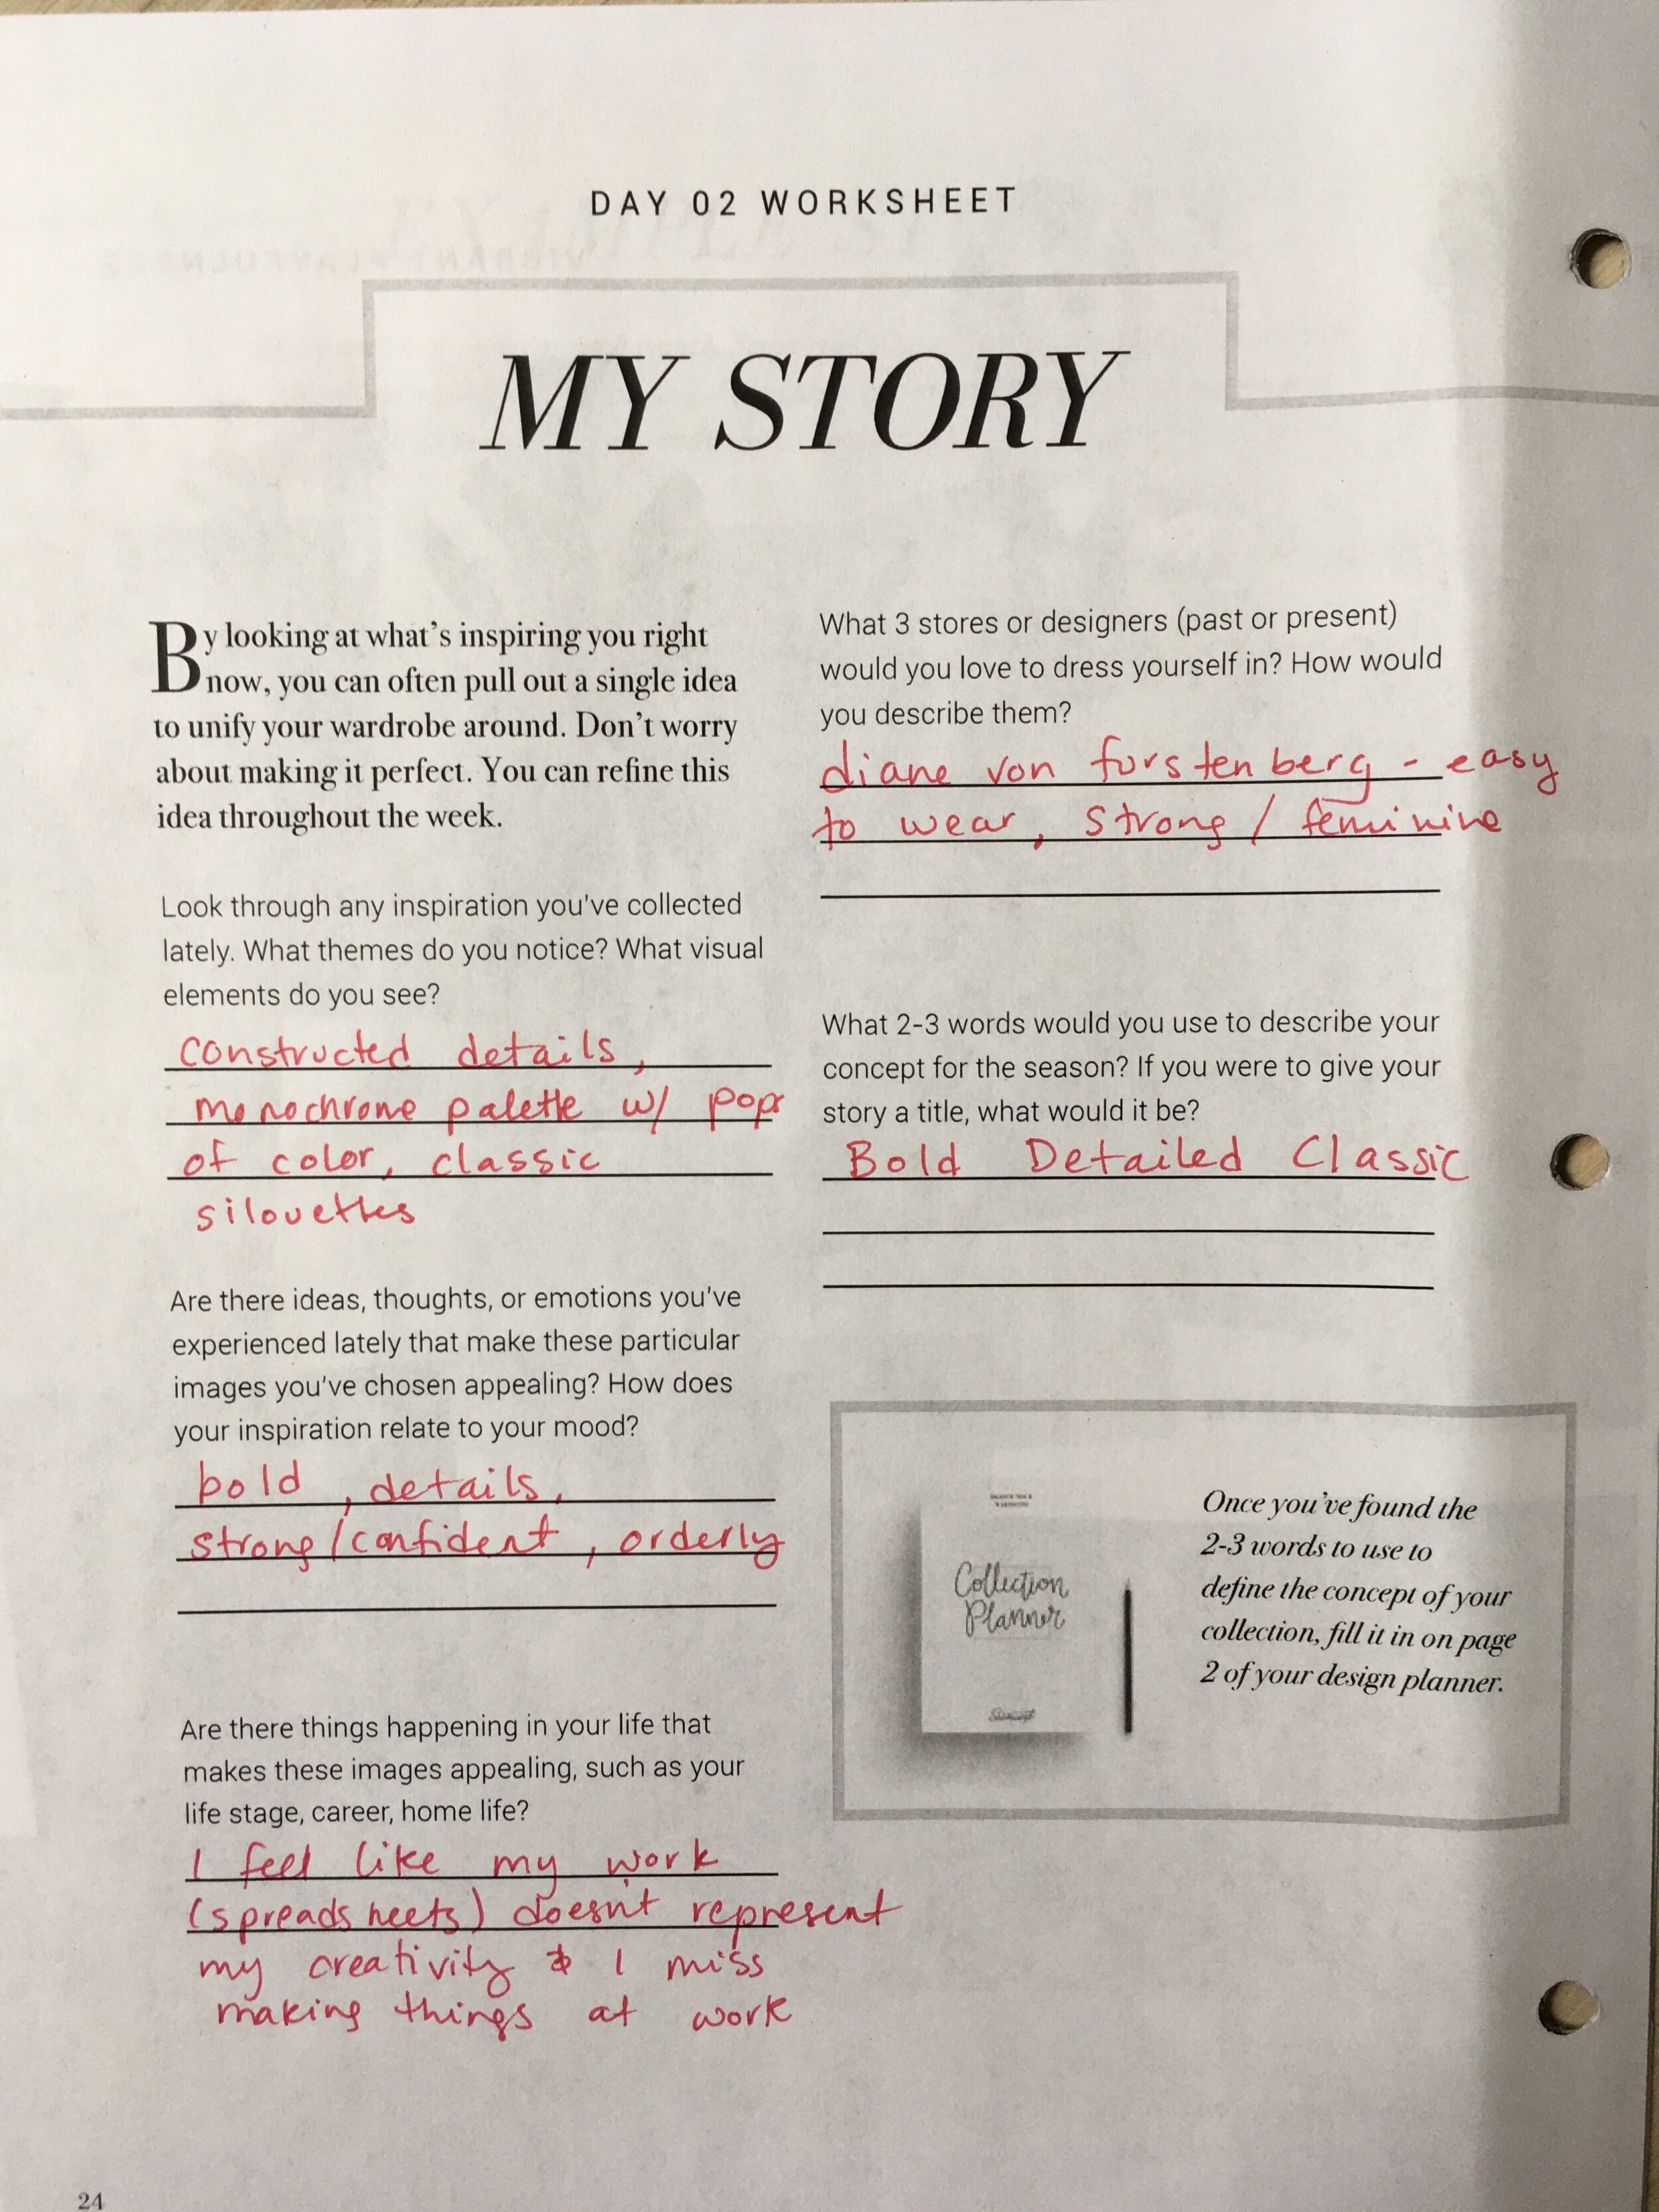 DAY 02 WORKSHEET
MY STORY
By looking at what's inspiring you right
now, you can often pull out a single idea
to unify your wardrobe around. Don't worry
about making it perfect. You can refine this
idea throughout the week.
Look through any inspiration you've collected
lately. What themes do you notice? What visual
elements do you see?
constructed details,
monochrome palette w/ pops
of color, classic
silouettes
Are there ideas, thoughts, or emotions you've
experienced lately that make these particular
images you've chosen appealing? How does
your inspiration relate to your mood?
bold, details,
strong/confident, orderly
Are there things happening in your life that
makes these images appealing, such as your
life stage, career, home life?
I feel like my work
(spreadsheets) doesn't represent
my creativity & I miss
making things at work
What 3 stores or designers (past or present)
would you love to dress yourself in? How would
you describe them?
diane von furstenberg - easy
to wear, strong / feminine
What 2-3 words would you use to describe your
concept for the season? If you were to give your
story a title, what would it be?
Bold Detailed Classic
Collection
Planner
Once you've found the
2-3 words to use to
define the concept of your
collection, fill it in on page
2 of your design planner.
24